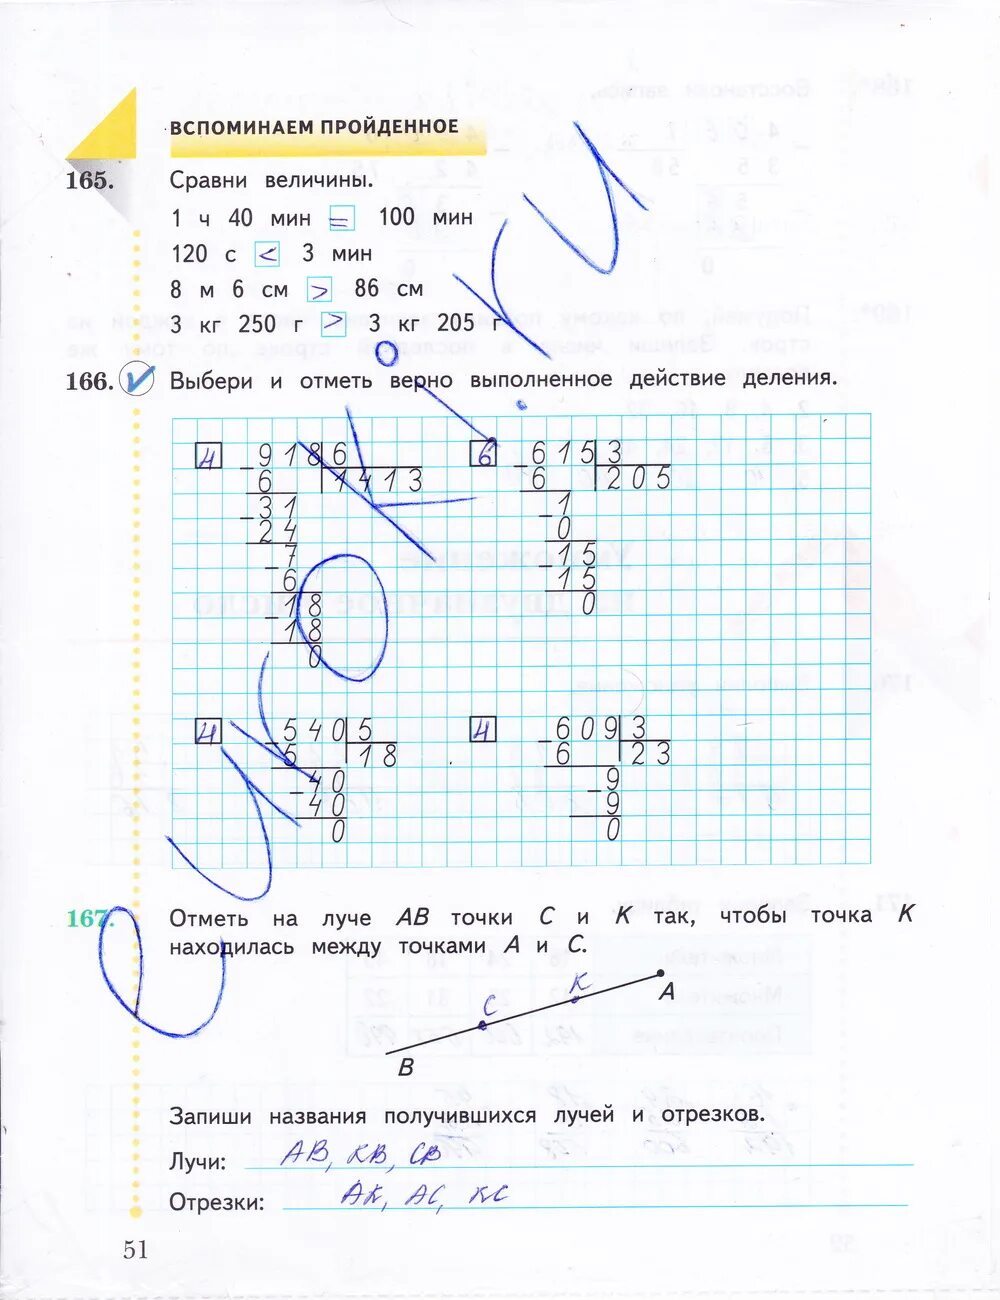 ВСПОМИНАЕМ ПРОЙДЕННОЕ
165. Сравни величины.
1 ч 40 мин = 100 мин
120 с < 3 мин
8 м 6 см > 86 см
3 кг 250 г > 3 кг 205 г
166. Выбери и отметь верно выполненное действие деления.
4 6
918 6 615 3
6 1413 6 205
31 1
24 0
7 15
6 15
18 0
18
0
4 4
540 5 609 3
5 18 6 23
40 9
40 9
0 0
167. Отметь на луче AB точки C и K так, чтобы точка K
находилась между точками A и C.
K
A
C
B
Запиши названия получившихся лучей и отрезков.
Лучи: AB, KB, CB
Отрезки: AK, AC, KC
51